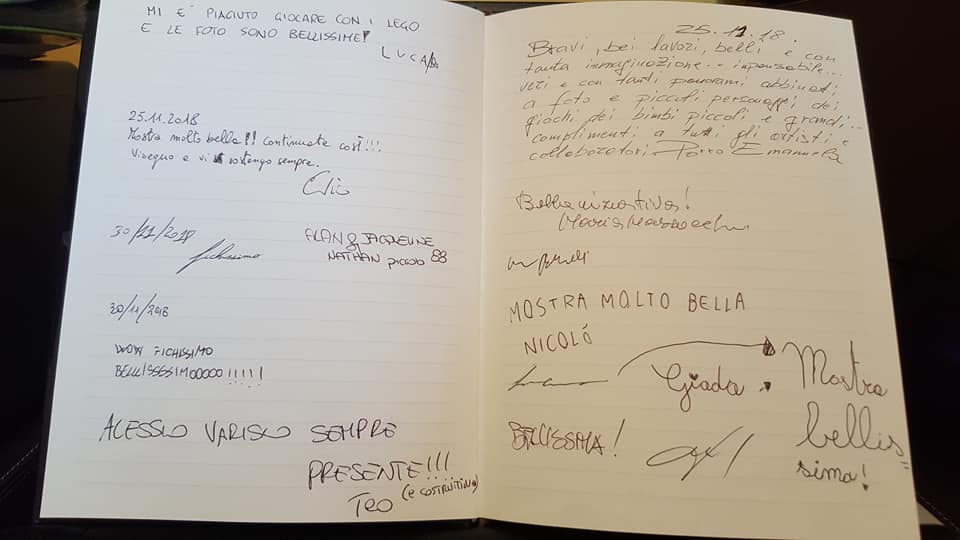 MI E' PIACIUTO GIOCARE CON I LEGO
E LE FOTO SONO BELLISSIME!
LUCA
25.11.2018
Mostra molto bella!! Continuate così!!!
Vi seguo e vi sostengo sempre.
30/11/2018
fichissimo
ALAN & JACQUELINE
NATHAN piccolo 88
30/11/2018
WOW FICHISSIMO
BELLISSESSIMOOOOO !!!!!
ALESSIO VARISCO SEMPRE
PRESENTE!!!
(E COSTRUTTIVO)
TEO
25.11.18.
Bravi, bei lavori, belli e con
tanta immaginazione... impensabile...
veri e con tanti panorami abbinati
a foto e piccoli personaggi dei
giochi dei bimbi piccoli e grandi...
complimenti a tutti gli artisti e
collaboratori Porro Emanuela
Bella iniziativa!
Maria
MOSTRA MOLTO BELLA
NICOLÓ
Giada.
Mostra
bellis=
sima!
BELLISSIMA!